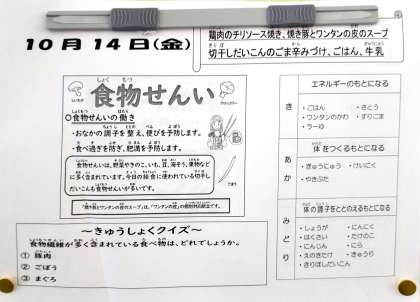 10月14日(金)
鶏肉のチリソース焼き、焼き豚とワンタンの皮のスープ
切干しだいこんのごま辛みづけ、ごはん、牛乳
食物せんい
○食物せんいの働き
・おなかの調子を整え、便びを予防します。
・食べ過ぎを防ぎ、肥満を予防します。
食物せんいは、野菜やきのこ、いも、豆、海そう、果物など
に多く含まれています。今日の給食に使われている切干し
だいこんも食物せんいが多いです。
～きゅうしょくクイズ～
食物繊維が多く含まれている食べ物は、どれでしょうか。
① 豚肉
② ごぼう
③ まぐろ
エネルギーのもとになる
き
・ごはん ・さとう
・ワンタンのかわ ・すりごま
・ラーゆ
体をつくるもとになる
あか
・ぎゅうにゅう ・けいにく
・やきぶた
体の調子をととのえるもとになる
みどり
・しょうが ・にんにく
・はくさい ・たけのこ
・にんじん ・にら
・えのきたけ ・きゅうり
・きりぼしだいこん